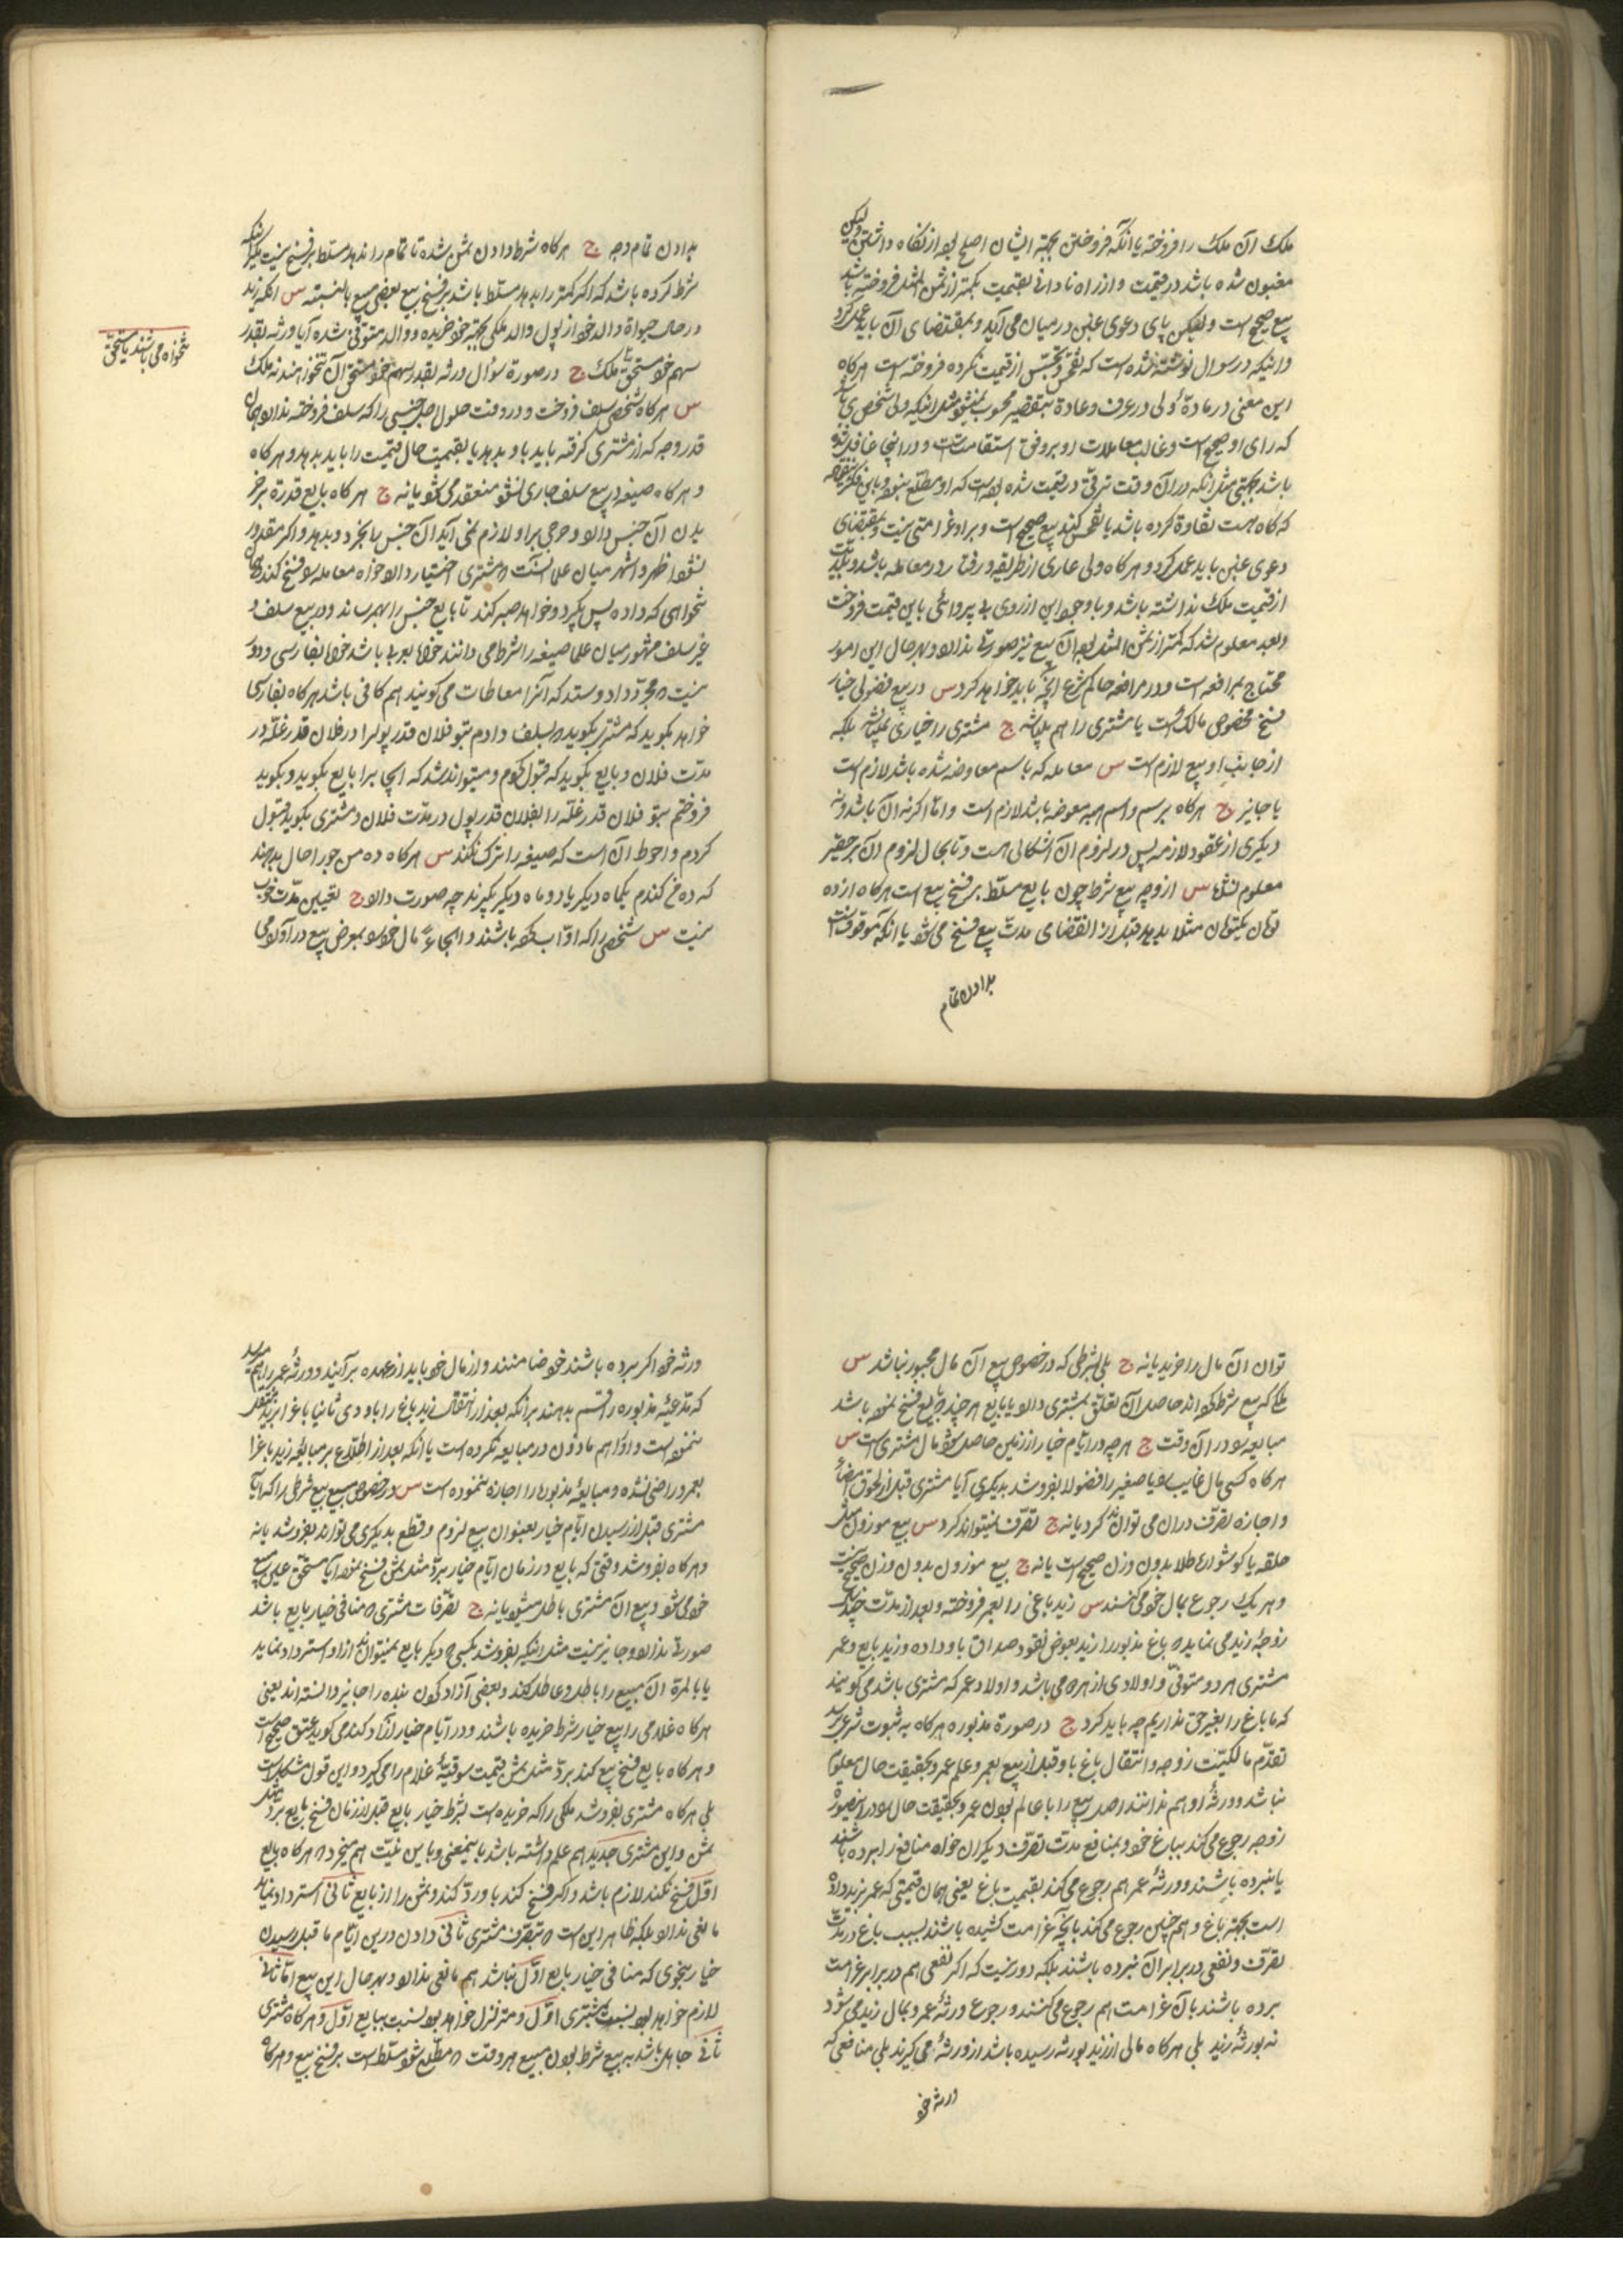 ملک آن ملک را فروخته یا آنکه فروختن بجهته ایشان اصلح بوده از نگاه داشتن ولیکن
مغبون شده باشد در قیمت و از راه نادانی بقیمت کمتر از ثمن المثل فروخته باشد
بیع صحیح است ولیکن پای دعوی غبن در میان می آید و بمقتضای آن باید عمل کرد
و اینکه در سوال نوشته شده است که تفحص و تجسس از قیمت نکرده فروخته است هرگاه
این معنی در ماده ولی در عرف و عادة تقصیر محسوب نمیشود مثل اینکه ولی شخصی باشد
که رای او صحیح است و غالب معاملات او بر وفق استقامت است و در اینجا غافل شده
باشد بجهتی مثل آنکه در آن وقت ترقی در قیمت شده بوده است که او مطلع نبوده و باین فکر نیفتاده
که گاه هست تفاوة کرده باشد یا تفحص کند بیع صحیح است و بر او غرامتی نیست و بمقتضای
دعوی غبن باید عمل کرد و هرگاه ولی عاری از طریقه و رفتار در معامله باشد و بلدیت
از قیمت ملک نداشته باشد و با وجود این از روی بی پروائی باین قیمت فروخت
و بعد معلوم شد که کمتر از ثمن المثل بوده آن بیع نیز صورتی ندارد و بهر حال این امور
محتاج بمرافعه است و در مرافعه حاکم شرع آنچه باید خواهد کرد س در بیع فضولی خیار
فسخ مخصوص مالک است یا مشتری را هم میباشد ج مشتری را خیاری نمیباشد بلکه
از جانب او بیع لازم است س معامله که باسم معاوضه شده باشد لازم است
یا جایز ج هرگاه برسم و اسم هبه معوضه باشد لازم است و اما اگر نه آن باشد و نه
دیگری از عقود لازمه پس در لزوم آن اشکالی هست و تا بحال لزوم آن بر حقیر
معلوم نشده س از وجه بیع شرط چون بایع مسلط بر فسخ بیع است هرگاه از ده
تومان یکتومان مثلا بدهد قبل از انقضای مدت بیع فسخ می شود یا آنکه موقوفست
بدادن تمام
بدادن تمام وجه ج هرگاه شرط دادن ثمن شده تا تمام را ندهد مسلط بر فسخ نیست مگر اینکه
شرط کرده باشد که اگر کمتر را بدهد مسلط باشد بر فسخ بیع بعضی مبیع بالنسبته س آنکه زید
در حال حیوة والد خود از پول والد ملکی بجهته خود خریده و والد متوفی شده آیا ورثه بقدر
سهم خود مستحق ملک ج در صورة سؤال ورثه بقدر سهم خود مستحق آن تنخواهند نه ملک
تنخواه می باشند یا مستحق
س هرگاه شخصی سلف فروخت و در وقت حلول اجل جنسی را که سلف فروخته ندارد همان
قدر وجه که از مشتری گرفته باید باو بدهد یا بقیمت حال قیمت را باید بدهد و هرگاه
و هرگاه صیغه در بیع سلف جاری نشود منعقد می شود یا نه ج هرگاه بایع قدرة بر خر
یدن آن جنس دارد و حرجی بر او لازم نمی آید آن جنس را بخرد و بدهد و اگر مقدور
نشود اظهر و اشهر میان علما آنست که مشتری اختیار دارد خواه معامله را فسخ کند و همان
تنخواهی که داده پس بگیرد و خواهد صبر کند تا بایع جنس را بهمرساند و در بیع سلف و
غیر سلف مشهور میان علما صیغه را شرط می دانند خواه بعربی باشد خواه بفارسی و دور
نیست که مجرد داد و ستد که آنرا معاطات می گویند هم کافی باشد هرگاه بفارسی
خواهد بگوید که مشتری بگوید که بسلف دادم بتو فلان قدر پول را در فلان قدر غله در
مدت فلان و بایع بگوید که قبول کردم و میتواند شد که ایجاب را بایع بگوید و بگوید
فروختم بتو فلان قدر غله را بفلان قدر پول در مدت فلان و مشتری بگوید قبول
کردم و احوط آن است که صیغه را ترک نکند س هرگاه ده من جو را حال بدهند
که ده من گندم یکماه دیگر یا دو ماه دیگر بگیرند چه صورت دارد ج تعیین مدت خوب
نیست س شخصی را که اواب کرده باشند و الجاءً مال خود را بمعرض بیع در آورد می
توان آن مال را خرید یا نه ج بلی بشرطی که در خصوص بیع آن مال مجبور نباشد س
ملکی که بیع شرط کرده اند حاصل آن تعلق بمشتری دارد یا بایع هر چند بایع فسخ نموده باشد
مبایعه را در آن وقت ج هرچه در ایام خیار از زمین حاصل شود مال مشتری است س
هرگاه کسی مال غایب را یا صغیر را فضولا بفروشد بدیگری آیا مشتری قبل از لحوق امضاء
و اجازه تصرف در آن می تواند کرد یا نه ج تصرف نمیتواند کرد س بیع موزون مثل
حلقه یا گوشواره طلا بدون وزن صحیح است یا نه ج بیع موزون بدون وزن صحیح نیست
و هر یک رجوع بمال خود می کنند س زید باغی را بعمر فروخته و بعد از مدت چند سال
زوجه زید می نماید که باغ مذبور را زید بعوض نقود صداق باو داده و زید بایع و عمر
مشتری هر دو متوفی و اولادی از هر دو می باشد و اولاد عمر که مشتری باشد می گویند
که ما باغ را بغیر حق نداریم چه باید کرد ج در صورة مذبوره هرگاه به ثبوت شرعی برسد
تقدم مالکیت زوجه و انتقال باغ باو قبل از بیع بعمر و علم عمر و بحقیقت حال معلوم
نباشد و ورثه او هم ندانند اصل بیع را با عالم بودن عمر و بحقیقت حال را در این صورة
زوجه رجوع می کند بباغ خود و بمنافع مدت تصرف دیگران خواه منافع را برده باشند
یا نبرده باشند و ورثه عمر هم رجوع می کند بقیمت باغ یعنی همان قیمتی که عمر بزید داده
است بجهته باغ و هم چنین رجوع می کند بآنچه غرامت کشیده باشند بسبب باغ در مدت
تصرف و نفعی در برابر آن نبرده باشند بلکه دور نیست که اگر نفعی هم در برابر غرامت
برده باشند بآن غرامت هم رجوع می کنند و رجوع ورثه عمر و بمال زید می شود
نه بورثه زید بلی هرگاه مالی از زید بورثه رسیده باشد از ورثه می گیرند بلی منافعی که
ورثه خود
ورثه خود اگر برده باشند خود ضامنند و از مال خود باید از عهده برآیند و ورثه عمر را هم میرسد
که مدعیه مذبوره را قسم بدهند بر آنکه بعد از انتقال زید باغ را باو دی ثانیا باغ را بزید منتقل
ننموده است و او را هم ماذون در مبایعه نکرده است یا آنکه بعد از اطلاع بر مبایعه زید باغ را
بعمر و راضی نشده و مبایعه مذبوره را اجازه ننموده است س در خصوص مبیع بیع شرطی را که آیا
مشتری قبل از رسیدن ایام خیار بعنوان بیع لزوم و قطع بدیگری می تواند بفروشد یا نه
و هرگاه بفروشد وقتی که بایع در زمان ایام خیار برد مثل ثمن فسخ نمود آیا مستحق عین مبیع
خود می شود و بیع آن مشتری باطل میشود یا نه ج تصرفات مشتری که منافی خیار بایع باشد
صورتی ندارد و جایز نیست مثل اینکه بفروشد بکسی که دیگر بایع نمیتواند از او استرداد نماید
یا بالمرة آن مبیع را باطل و عاطل کند و بعضی آزاد کردن بنده را جایز دانسته اند یعنی
هرگاه غلامی را ببیع خیار شرط خریده باشند و در ایام خیار آزاد کند می گوید عتق صحیح است
و هرگاه بایع فسخ بیع کند برد مثل ثمن قیمت سوقیه غلام را می گیرد و این قول مشکل است
بلی هرگاه مشتری بفروشد ملکی را که خریده است بشرط خیار بایع قبل از زمان فسخ بایع برد مثل
ثمن و این مشتری جدید هم علم داشته باشد باینمعنی و باین نیت هم میخرد که هرگاه بایع
اول فسخ نکند لازم باشد و اگر فسخ کند باو رد کند و ثمن را از بایع ثانی استرداد نماید
مانعی ندارد بلکه ظاهر این است که بتصرف مشتری ثانی دادن درین ایام ما قبل رسیدن
خیار بنحوی که منافی خیار بایع اول نباشد هم مانعی ندارد و بهر حال این بیع اما ثانی
لازم خواهد بود بنسبت بمشتری اول و متزلزل خواهد بود بنسبت ببایع اول و هرگاه مشتری
ثانی جاهل باشد به بیع شرط بودن مبیع هر وقت که مطلع شود مسلط است بر فسخ بیع و هرگاه